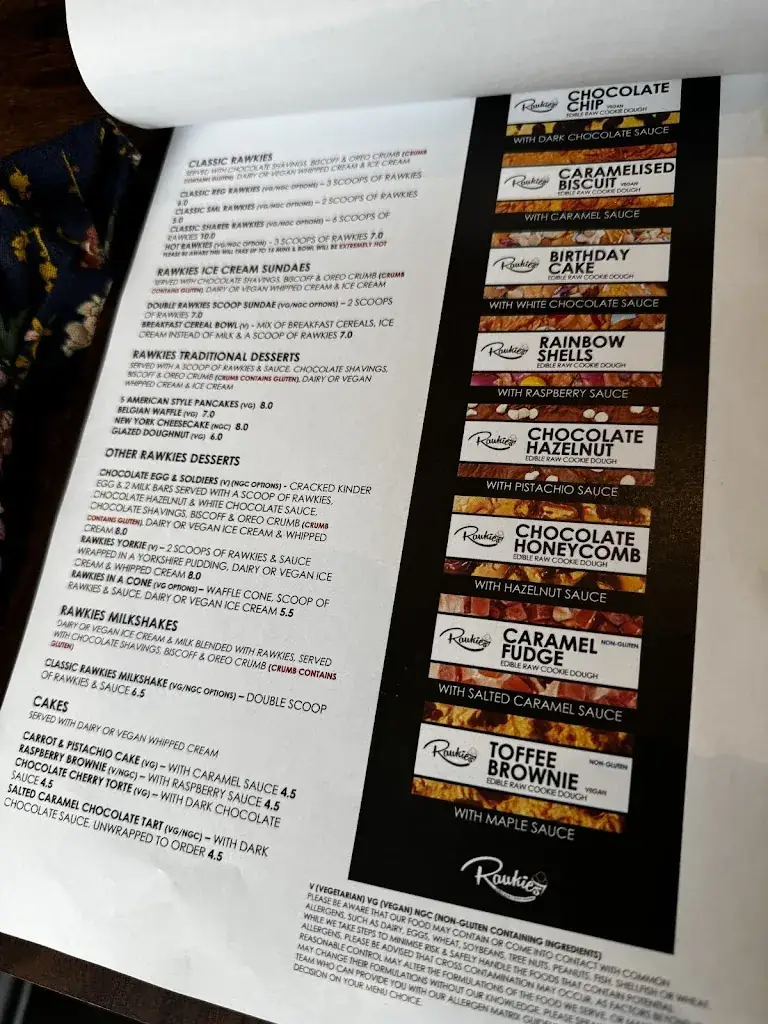 CLASSIC RAWKIES
SERVED WITH CHOCOLATE SHAVINGS, BISCOFF & OREO CRUMB (CRUMB
CONTAINS GLUTEN), DAIRY OR VEGAN WHIPPED CREAM & ICE CREAM
CLASSIC REG RAWKIES (VG/NGC OPTIONS) – 3 SCOOPS OF RAWKIES
CLASSIC SML RAWKIES (VG/NGC OPTIONS) – 2 SCOOPS OF RAWKIES
5.0
CLASSIC SHARER RAWKIES (VG/NGC OPTIONS) – 6 SCOOPS OF
RAWKIES 10.0
HOT RAWKIES (VG/NGC OPTION) - 3 SCOOPS OF RAWKIES 7.0
PLEASE BE AWARE THIS WILL TAKE UP TO 15 MINS & BOWL WILL BE EXTREMELY HOT
RAWKIES ICE CREAM SUNDAES
SERVED WITH CHOCOLATE SHAVINGS, BISCOFF & OREO CRUMB (CRUMB
CONTAINS GLUTEN), DAIRY OR VEGAN WHIPPED CREAM & ICE CREAM
DOUBLE RAWKIES SCOOP SUNDAE (VG/NGC OPTIONS) – 2 SCOOPS
OF RAWKIES 7.0
BREAKFAST CEREAL BOWL (V) - MIX OF BREAKFAST CEREALS, ICE
CREAM INSTEAD OF MILK & A SCOOP OF RAWKIES 7.0
RAWKIES TRADITIONAL DESSERTS
SERVED WITH A SCOOP OF RAWKIES & SAUCE, CHOCOLATE SHAVINGS,
BISCOFF & OREO CRUMB (CRUMB CONTAINS GLUTEN), DAIRY OR VEGAN
WHIPPED CREAM & ICE CREAM
5 AMERICAN STYLE PANCAKES (VG) 8.0
BELGIAN WAFFLE (VG) 7.0
NEW YORK CHEESECAKE (NGC) 8.0
GLAZED DOUGHNUT (VG) 6.0
OTHER RAWKIES DESSERTS
CHOCOLATE EGG & SOLDIERS (V) (NGC OPTIONS) - CRACKED KINDER
EGG & 2 MILK BARS SERVED WITH A SCOOP OF RAWKIES,
CHOCOLATE HAZELNUT & WHITE CHOCOLATE SAUCE,
CHOCOLATE SHAVINGS, BISCOFF & OREO CRUMB (CRUMB
CONTAINS GLUTEN), DAIRY OR VEGAN ICE CREAM & WHIPPED
CREAM 8.0
RAWKIES YORKIE (V) – 2 SCOOPS OF RAWKIES & SAUCE
WRAPPED IN A YORKSHIRE PUDDING, DAIRY OR VEGAN ICE
CREAM & WHIPPED CREAM 8.0
RAWKIES IN A CONE (VG OPTIONS) – WAFFLE CONE, SCOOP OF
RAWKIES & SAUCE, DAIRY OR VEGAN ICE CREAM 5.5
RAWKIES MILKSHAKES
DAIRY OR VEGAN ICE CREAM & MILK BLENDED WITH RAWKIES, SERVED
WITH CHOCOLATE SHAVINGS, BISCOFF & OREO CRUMB (CRUMB CONTAINS
GLUTEN)
CLASSIC RAWKIES MILKSHAKE (VG/NGC OPTIONS) – DOUBLE SCOOP
OF RAWKIES & SAUCE 6.5
CAKES
SERVED WITH DAIRY OR VEGAN WHIPPED CREAM
CARROT & PISTACHIO CAKE (VG) – WITH CARAMEL SAUCE 4.5
RASPBERRY BROWNIE (V/NGC) – WITH RASPBERRY SAUCE 4.5
CHOCOLATE CHERRY TORTE (VG) – WITH DARK CHOCOLATE
SAUCE 4.5
SALTED CARAMEL CHOCOLATE TART (VG/NGC) – WITH DARK
CHOCOLATE SAUCE, UNWRAPPED TO ORDER 4.5
Rawkies CHOCOLATE
CHIP VEGAN
EDIBLE RAW COOKIE DOUGH
WITH DARK CHOCOLATE SAUCE
Rawkies CARAMELISED
BISCUIT VEGAN
EDIBLE RAW COOKIE DOUGH
WITH CARAMEL SAUCE
Rawkies BIRTHDAY
CAKE
EDIBLE RAW COOKIE DOUGH
WITH WHITE CHOCOLATE SAUCE
Rawkies RAINBOW
SHELLS
EDIBLE RAW COOKIE DOUGH
WITH RASPBERRY SAUCE
Rawkies CHOCOLATE
HAZELNUT
EDIBLE RAW COOKIE DOUGH
WITH PISTACHIO SAUCE
Rawkies CHOCOLATE
HONEYCOMB
EDIBLE RAW COOKIE DOUGH
WITH HAZELNUT SAUCE
Rawkies CARAMEL NON-GLUTEN
FUDGE
EDIBLE RAW COOKIE DOUGH
WITH SALTED CARAMEL SAUCE
Rawkies TOFFEE NON-GLUTEN
BROWNIE
EDIBLE RAW COOKIE DOUGH VEGAN
WITH MAPLE SAUCE
Rawkies
V (VEGETARIAN) VG (VEGAN) NGC (NON-GLUTEN CONTAINING INGREDIENTS)
PLEASE BE AWARE THAT OUR FOOD MAY CONTAIN OR COME INTO CONTACT WITH COMMON
ALLERGENS, SUCH AS DAIRY, EGGS, WHEAT, SOYBEANS, TREE NUTS, PEANUTS, FISH, SHELLFISH OR WHEAT.
WHILE WE TAKE STEPS TO MINIMISE RISK & SAFELY HANDLE THE FOODS THAT CONTAIN POTENTIAL
ALLERGENS, PLEASE BE ADVISED THAT CROSS CONTAMINATION MAY OCCUR, AS FACTORS BEYOND
REASONABLE CONTROL MAY ALTER THE FORMULATIONS OF THE FOOD WE SERVE, OR
MAY CHANGE THEIR FORMULATIONS WITHOUT OUR KNOWLEDGE. PLEASE
TEAM WHO CAN PROVIDE YOU WITH OUR ALLERGEN MATRIX
DECISION ON YOUR MENU CHOICE.